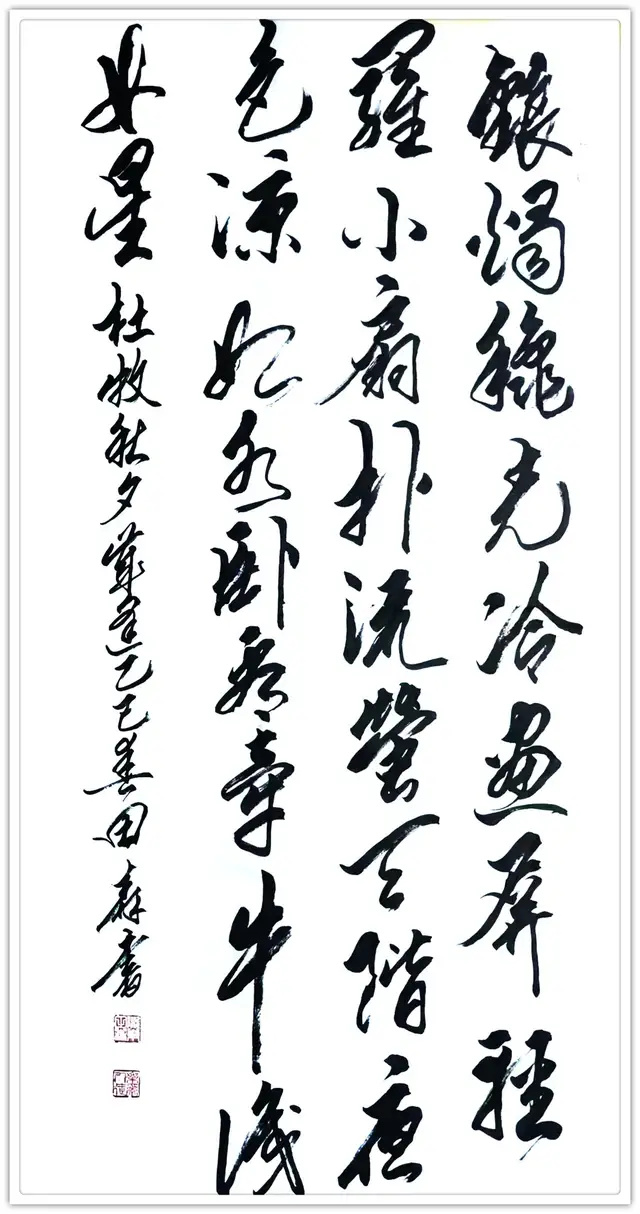 銀燭龝光冷畫屏輕
羅小扇扑流螢天階夜
色涼如水卧看牽牛織
女星 杜牧秋夕 歲逢乙巳春 田書